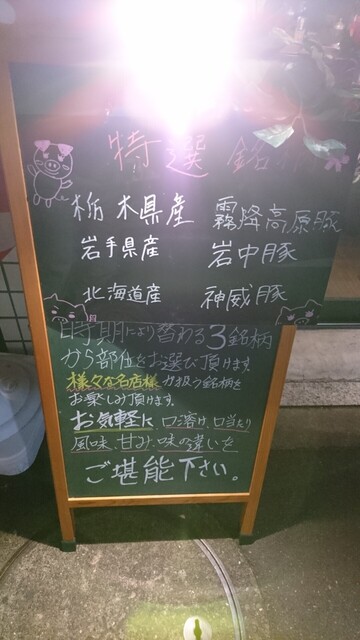 特選銘
栃木県産 霧降高原豚
岩手県産 岩中豚
北海道産 神威豚
時期により替わる3銘柄
から部位をお選び頂けます。
様々な名店様が扱う銘柄を
お楽しみ頂けます。
お気軽に、口溶け、口当たり
風味、甘み、味の違いを
ご堪能下さい。